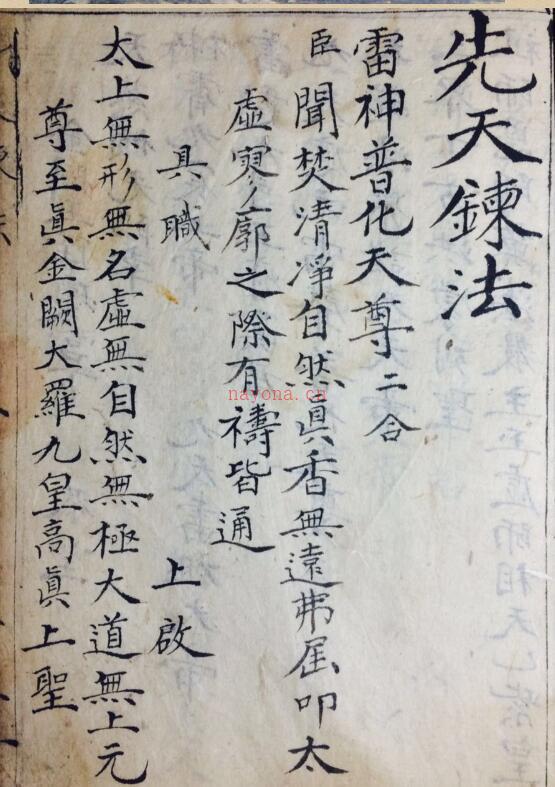 先天鍊法
雷神普化天尊 二合
臣聞焚清凈自然眞香無遠弗屆叩太
虛寥廓之際有禱皆通
具職 上啟
太上無形無名虛無自然無極大道無上元
尊至眞金闕大羅九皇高眞上聖
nayona.cn